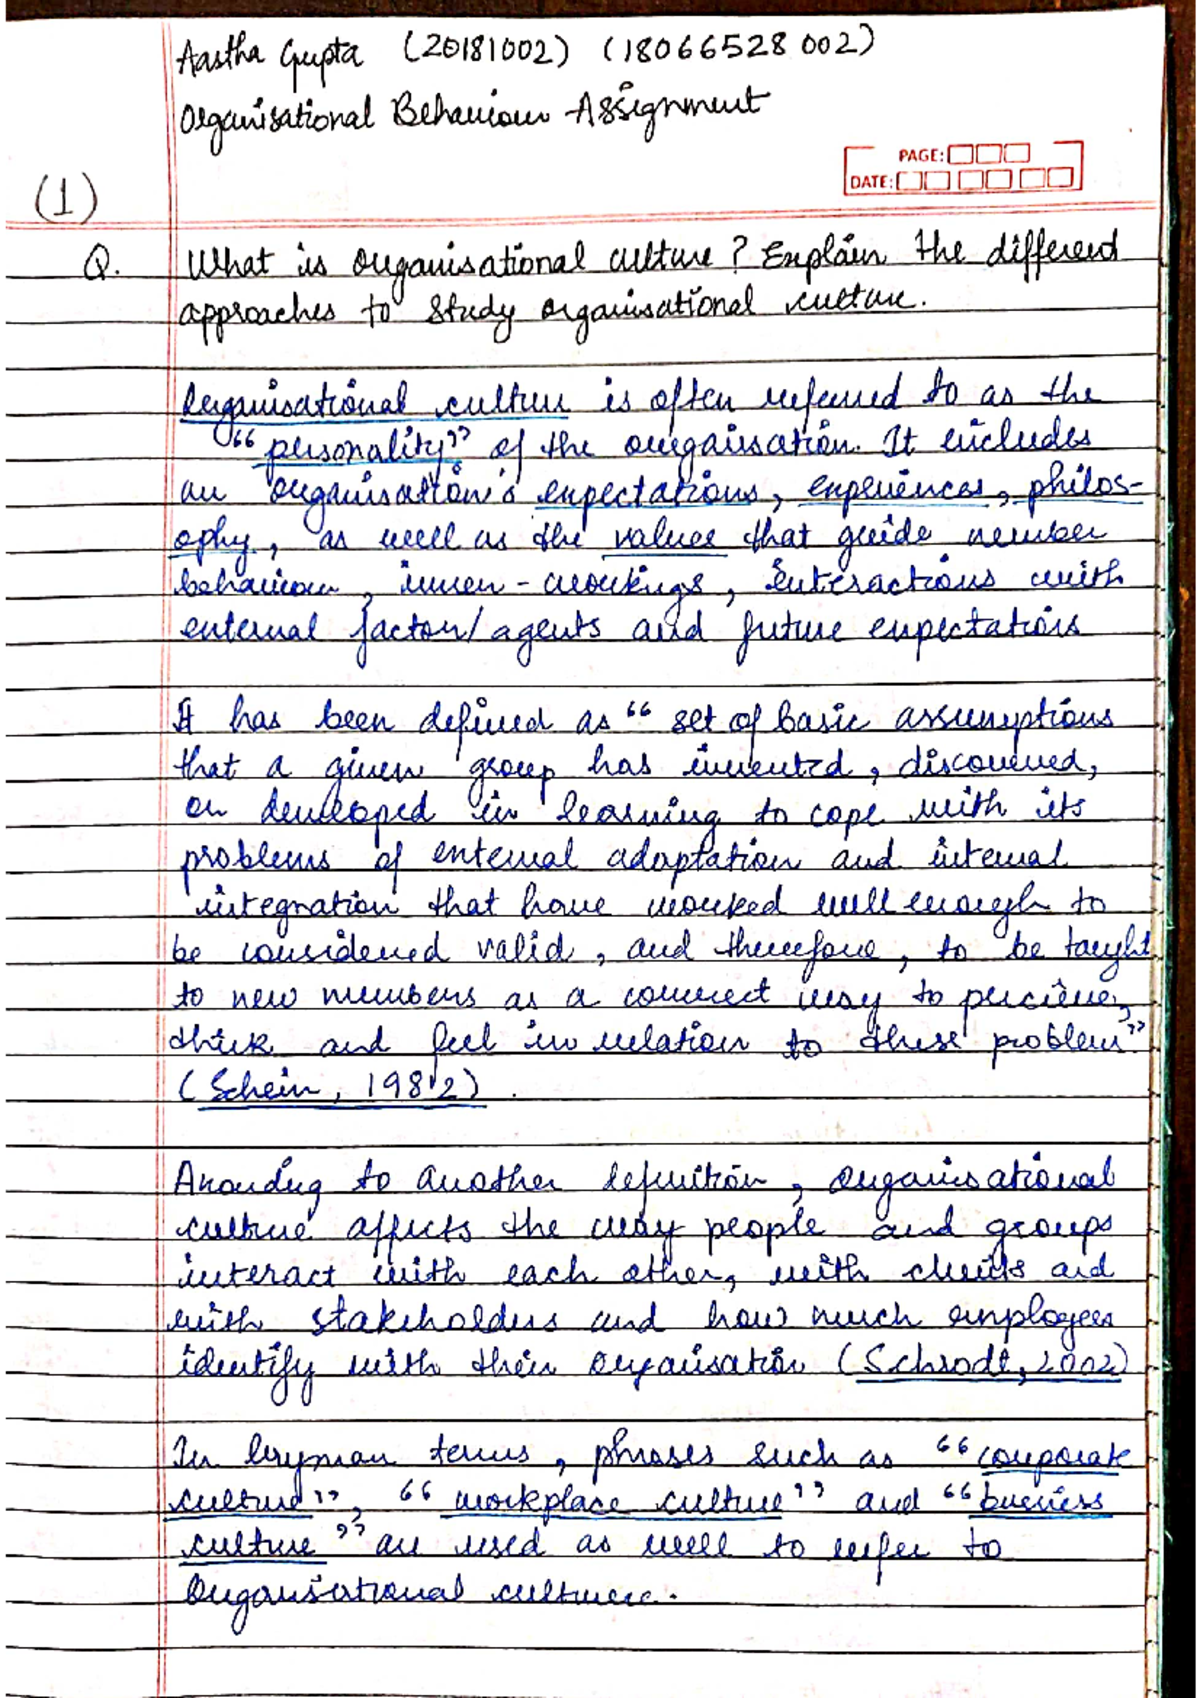 Aastha Gupta (20181002) (18066528002)
Organisational Behaviour Assignment
PAGE:
DATE:
(1)
Q. What is organisational culture? Explain the different
approaches to study organisational culture.
Organisational culture is often referred to as the
"personality" of the organisation. It includes
an organisation's expectations, experiences, philos-
ophy, as well as the values that guide member
behaviour, inner-workings, interactions with
external factor/agents and future expectations
It has been defined as "set of basic assumptions
that a given group has invented, discovered,
or developed in learning to cope with its
problems of external adaptation and internal
integration that have worked well enough to
be considered valid, and therefore, to be taught
to new members as a correct way to percieve,
think and feel in relation to these problem"
(Schein, 1982).
According to another definition, organisational
culture affects the way people and groups
interact with each other, with clients and
with stakeholders and how much employees
identify with their organisation (Schrodt, 2002)
In layman terms, phrases such as "corporate
culture", "workplace culture" and "business
culture" are used as well to refer to
Organisational culture.